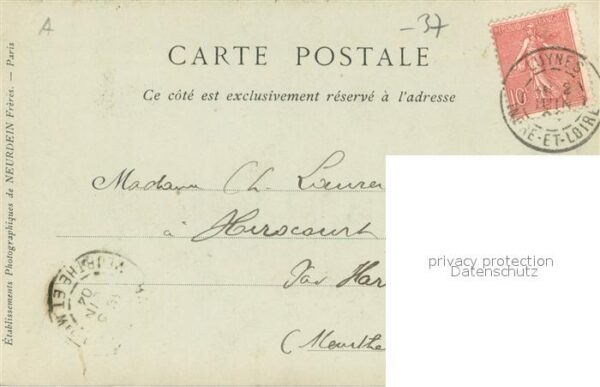 A
-37
CARTE POSTALE
Ce côté est exclusivement réservé à l'adresse
Établissements Photographiques de NEURDEIN Frères. — Paris
10
LUYNES
INDRE-ET-LOIRE
Madame Ch. Laure
à Herocourt
Par Har
(Meurthe
MEURTHE ET M
04
privacy protection
Datenschutz